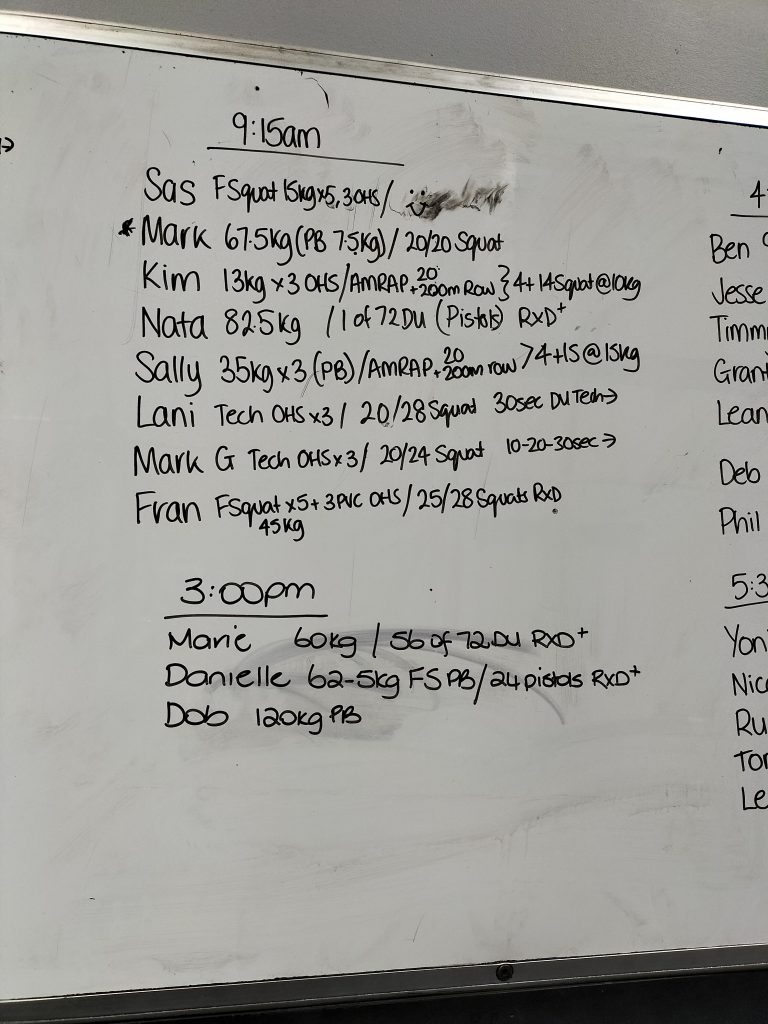 9:15am
Sas FSquat 15kgx5, 3 OHS/
* Mark 67.5kg (PB 7.5kg) / 20/20 Squat
Kim 13kg x 3 OHS/AMRAP 20 + 200m Row } 4 + 14 Squat @ 10kg
Nata 82.5kg / 1 of 72 DU (Pistols) RXD+
Sally 35kg x 3 (PB) / AMRAP 20 + 200m row > 4+15 @ 15kg
Lani Tech OHS x3 / 20/28 Squat 30sec DU Tech →
Mark G Tech OHS x3 / 20/24 Squat 10-20-30sec →
Fran FSquat x5 + 3 PVC OHS / 25/28 Squats RXD
45kg
3:00pm
Marie 60kg / 56 of 72 DU RXD+
Danielle 62-5kg FS PB / 24 pistols RXD+
Dob 120kg PB
4
Ben
Jesse
Timm
Grant
Lean
Deb
Phil
5:3
Yon
Nic
Ru
Tor
Le